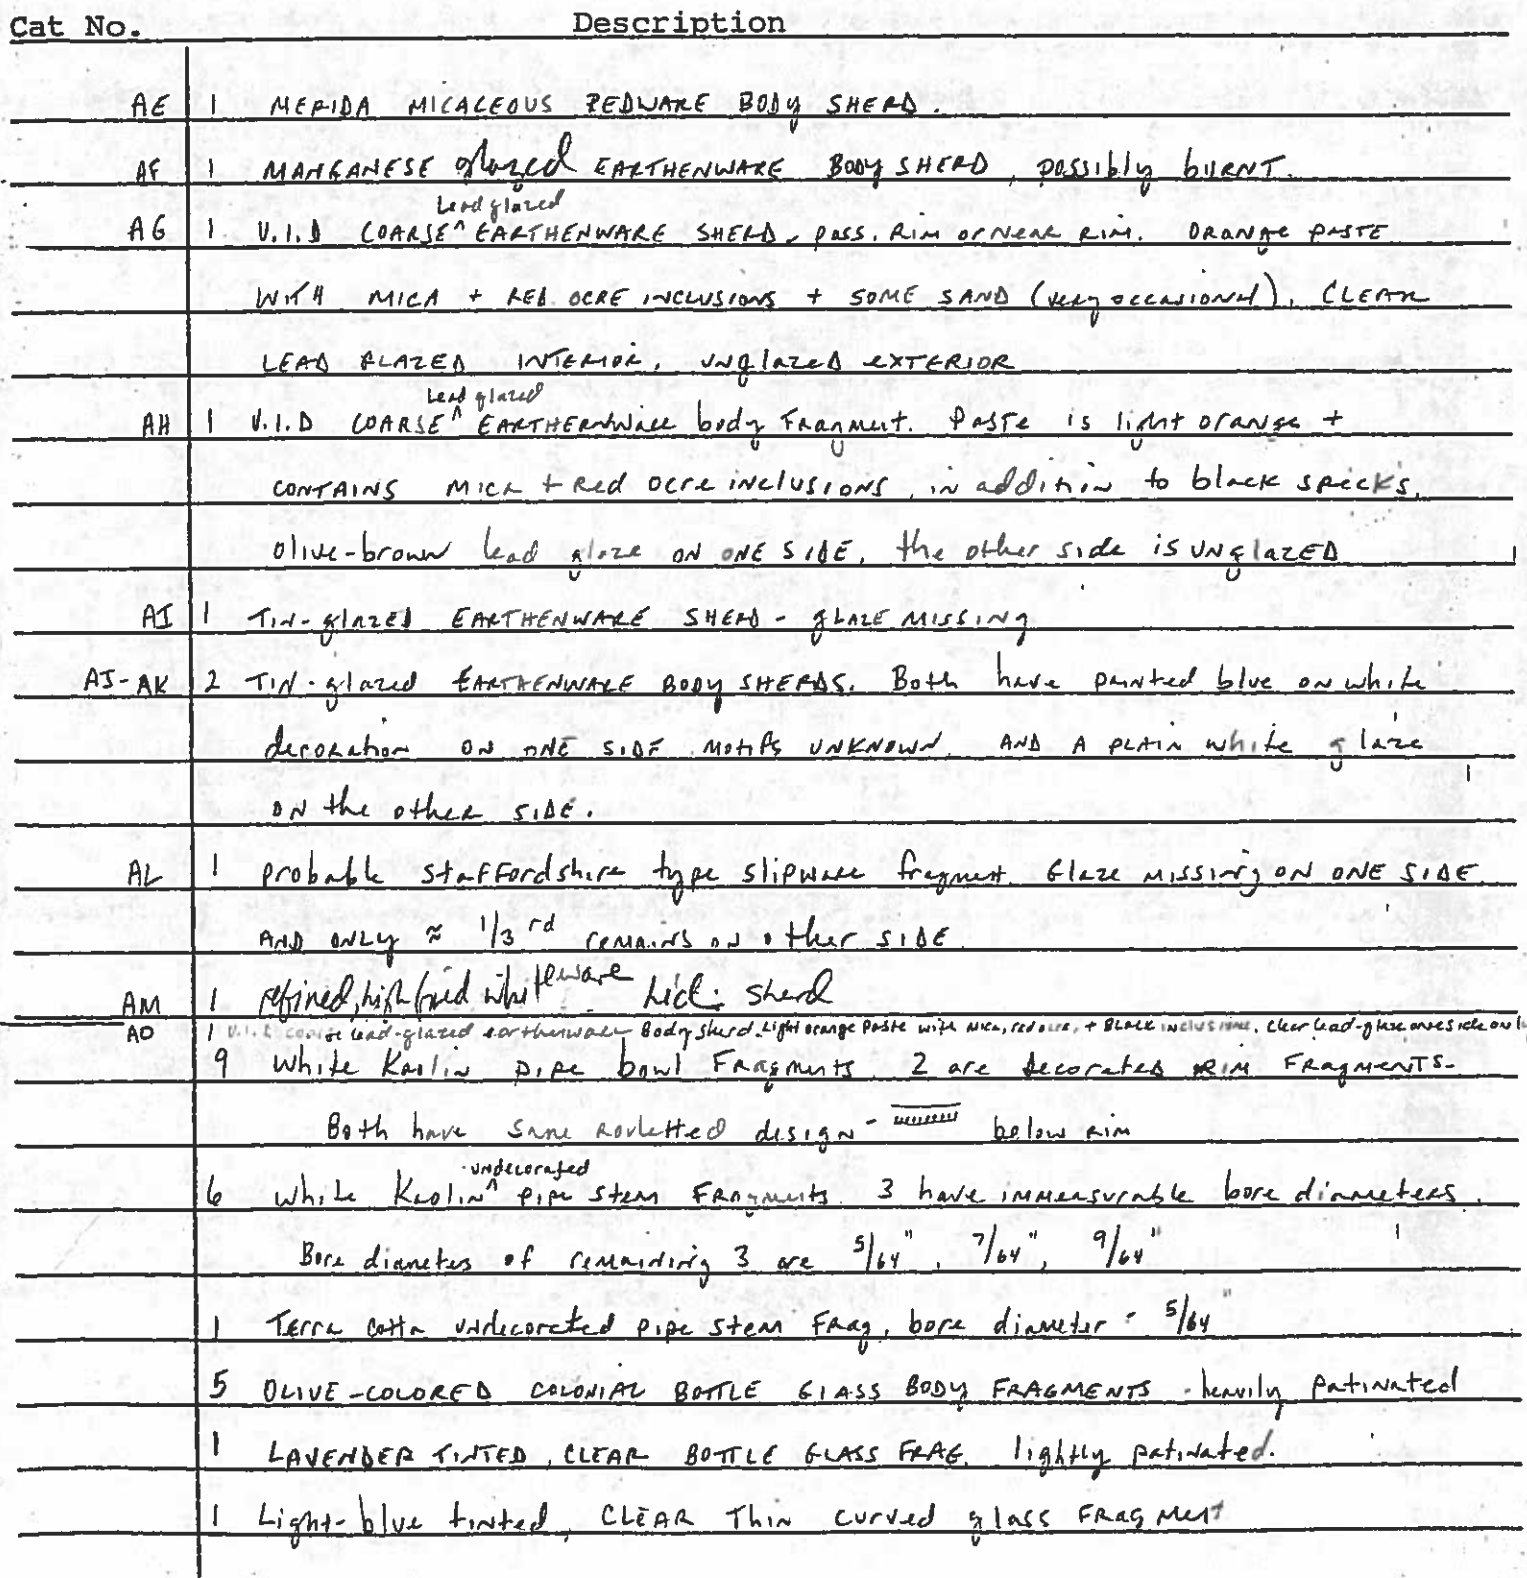 Cat No. Description
AE 1 MERIDA MICACEOUS REDWARE BODY SHERD.
AF 1 MANGANESE glazed EARTHENWARE BODY SHERD, possibly burnt.
Lead glazed
AG 1 V.I.D COARSE ^ EARTHENWARE SHERD - poss. Rim or Near Rim. ORANGE PASTE
WITH MICA + RED OCRE INCLUSIONS + SOME SAND (very occasional), CLEAR
LEAD GLAZED INTERIOR, UNglazed EXTERIOR
Lead glazed
AH 1 V.I.D COARSE ^ EARTHERNWare body Fragment. Paste is light orange +
CONTAINS Mica + Red Ocre inclusions, in addition to black specks,
olive-brown lead glaze ON ONE SIDE, the other side is UNglazED
AI 1 TIN-glazed EARTHENWARE SHERD - GLAZE MISSING
AJ-AK 2 TIN-glazed EARTHENWARE BODY SHERDS. Both have painted blue on white
decoration ON ONE SIDE motifs UNKNOWN, AND A PLAIN white glaze
ON the other SIDE.
AL 1 probable Staffordshire type slipware fragment. Glaze missing ON ONE SIDE
AND ONLY ≈ 1/3rd remains on other SIDE
AM 1 refined, high fired whiteware sherd
AO 1 V.I.D coarse lead-glazed earthenware Body sherd. Light orange Paste with mica, red ocre, + BLACK inclusions, clear lead-glaze one side only
9 White Kaolin pipe bowl Fragments 2 are decorated RIM FRAGMENTS-
Both have same rouletted design - below rim
undecorated
6 white Kaolin ^ pipe stem FRAgments. 3 have immeasurable bore diameters.
Bore diameters of remaining 3 are 5/64", 7/64", 9/64"
1 Terra Cotta undecorated pipe stem Frag, bore diameter - 5/64"
5 OLIVE-COLORED COLONIAL BOTTLE GLASS BODY FRAGMENTS - heavily patinated
1 LAVENDER TINTED, CLEAR BOTTLE GLASS FRAG. lightly patinated.
1 Light-blue tinted, CLEAR Thin curved glass FRAGMENT